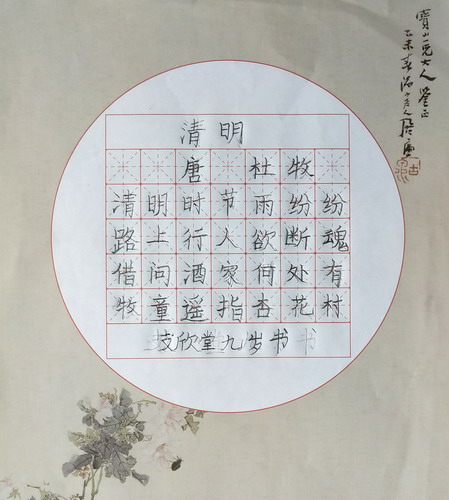 清明
唐 杜牧
清明时节雨纷纷
路上行人欲断魂
借问酒家何处有
牧童遥指杏花村
支欣堂九岁书
寶山一兄大人鉴正
乙未春
居廉